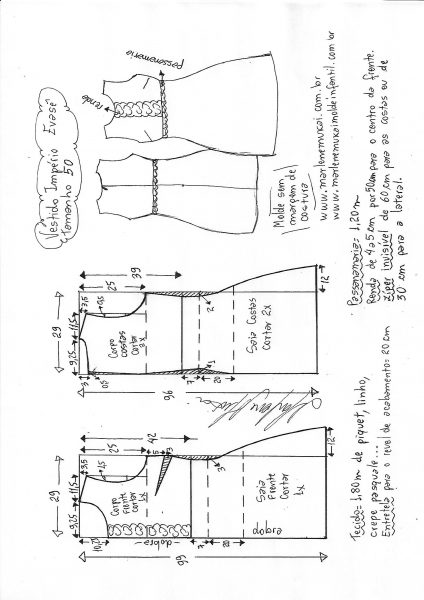 Vestido Império Evasê
Tamanho 50
passamanaria
renda
Molde sem
margem de
costura
www.marlenemukai.com.br
www.marlenemukaimoldeinfantil.com.br
Passamanaria: 1,20 m
Renda de 4 a 5 cm por 50cm para o centro da frente.
Zíper invisível de 60 cm para as costas ou de
30 cm para a lateral.
39
25
29
11,5
3,5
9,25
Corpo
costas
cortar
2x
Saia Costas
Cortar 2x
3
0,5
2
1
7
20
12
96
42
25
29
11,5
3,5
4,5
5
9,25
Corpo
frente
cortar
1x
Saia
Frente
Cortar
1x
3
10,25
dobra
dobra
7
20
12
Tecido: 1,80 m de piquet, linho,
crepe pasquale...
Entretela para o level de acabamento: 20 cm